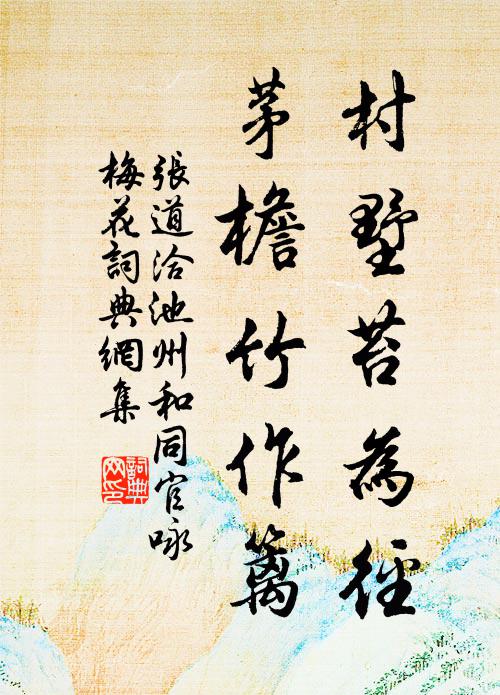 村墅苔為徑
茅檐竹作篱
張道洽池州和同官咏
梅花詞典網集
詞典网印